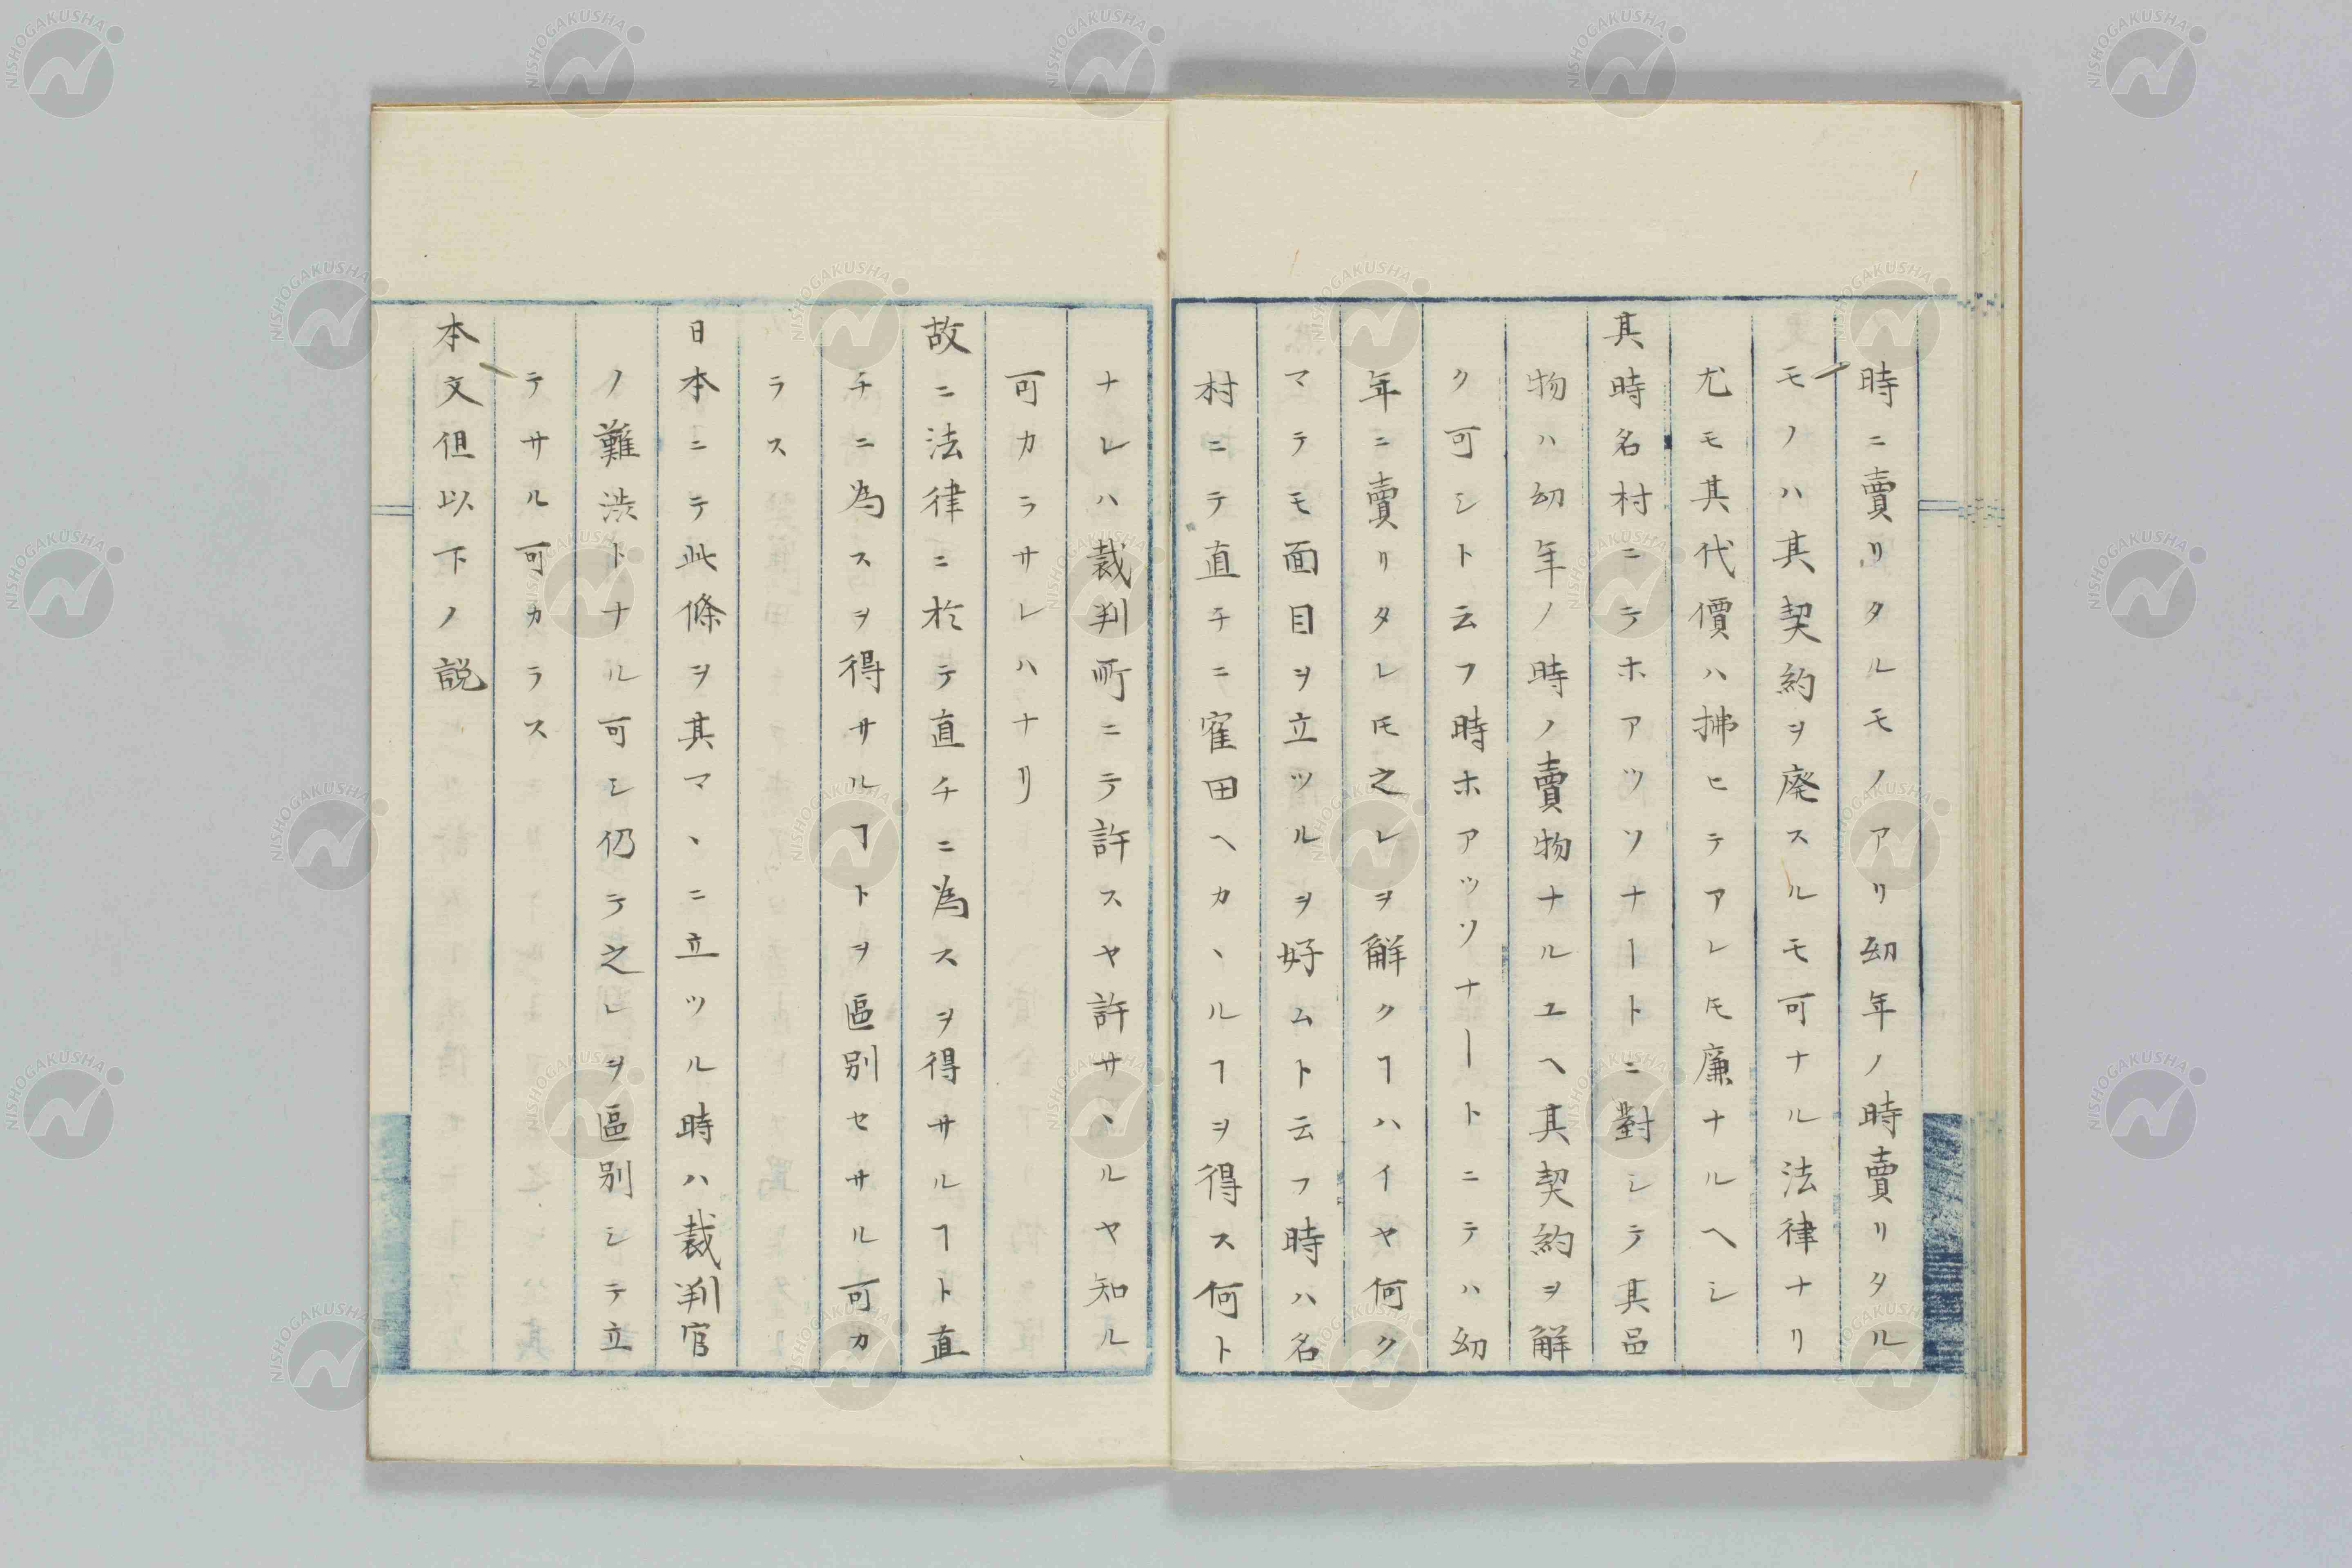 時ニ賣リタルモノアリ幼年ノ時賣リタル
モノハ其契約ヲ廃スルモ可ナル法律ナリ
尤モ其代價ハ拂ヒテアレ𪜈廉ナルヘシ
其時名村ニテホアツソナートニ對シテ其品
物ハ幼年ノ時ノ賣物ナルユヘ其契約ヲ解
ク可シト云フ時ホアッソナートニテハ幼
年ニ賣リタレ𪜈之レヲ解クヿハイヤ何ク
マテモ面目ヲ立ツルヲ好ムト云フ時ハ名
村ニテ直チニ窪田ヘカヽルヿヲ得ス何ト
ナレハ裁判所ニテ許スヤ許サヽルヤ知ル
可カラサレハナリ
故ニ法律ニ於テ直チニ為スヲ得サルヿト直
チニ為スヲ得サルヿトヲ區别セサル可カ
ラス
日本ニテ此條ヲ其マヽニ立ツル時ハ裁判官
ノ難渋トナル可シ仍テ之レヲ區别シテ立
テサル可カラス
本文但以下ノ説
NISHOGAKUSHA